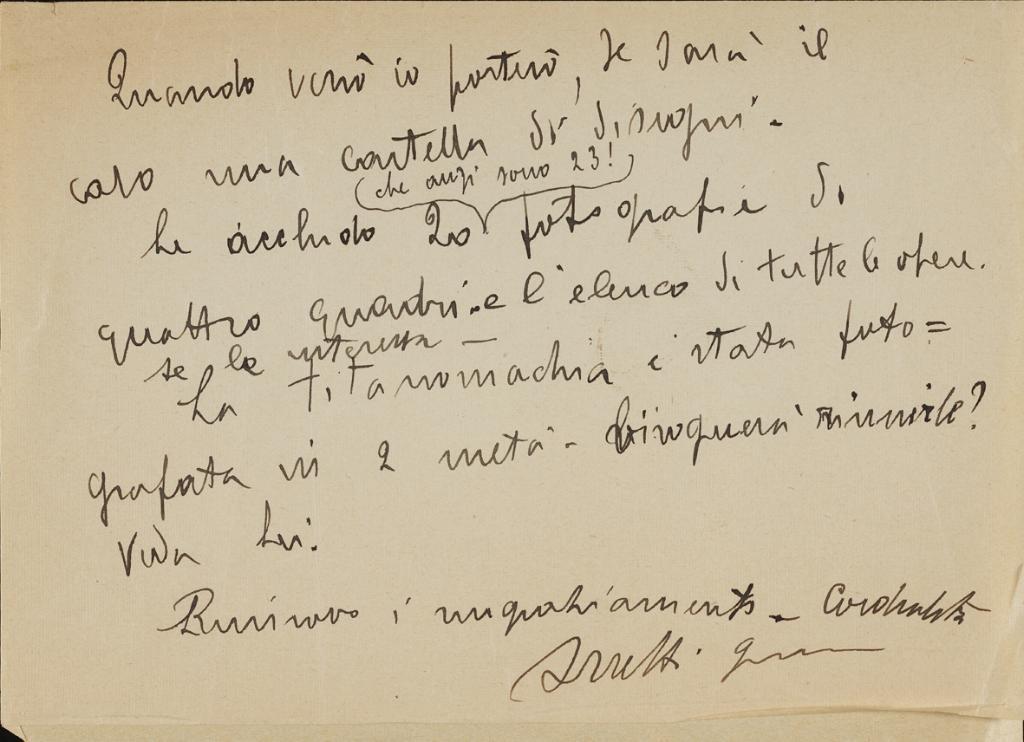 Quando verrò io porterò, se sarà il
caso una cartella di disegni.
(che anzi sono 23!)
Le accludo 20 fotografie di
quattro quadri e l'elenco di tutte le opere.
se le interessa —
La Titanomachia è stata foto=
grafata in 2 metà - bisognerà riunirle?
Veda Lei.
Rinnovo i ringraziamenti - Cordialità